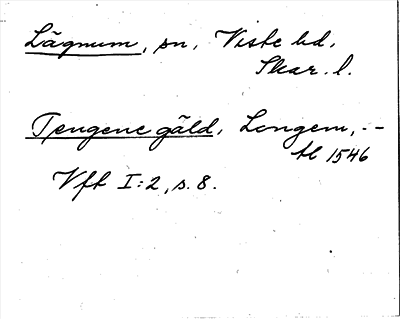 Lägnum, sn, Viste hd.
Skar. l.
Tengene gäld, Longem, --
tl 1546
Vft I:2, s. 8.